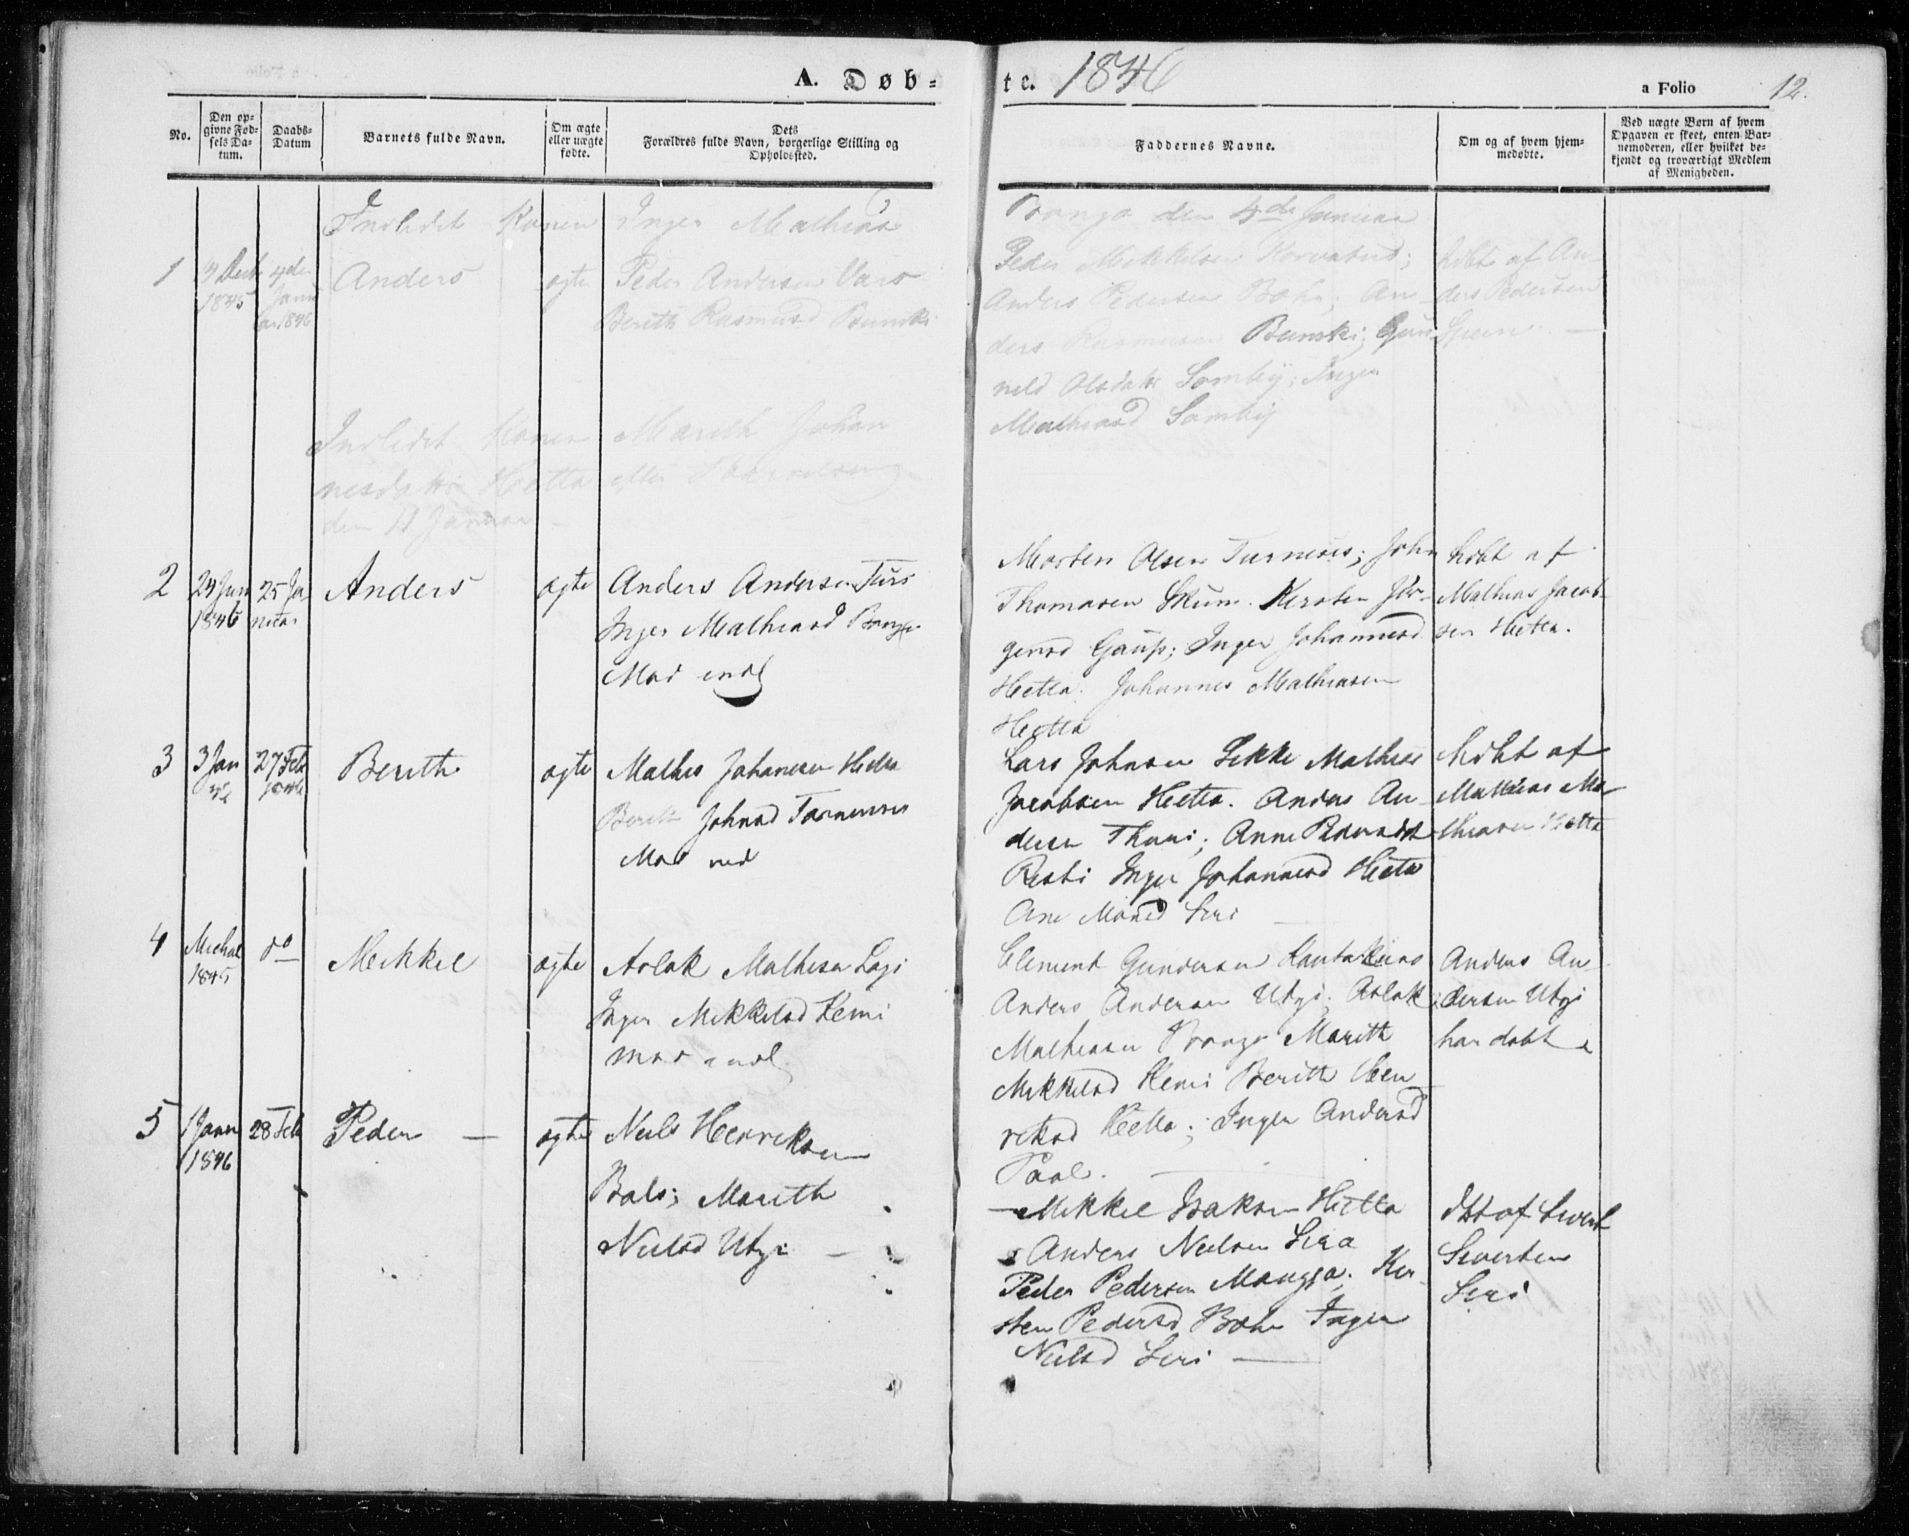 A. Døb-
te. 1846
a Folio 12.
No.
Den op-
givne Fød-
sels Da-
tum.
Daabs-
Datum
Barnets fulde Navn.
Om ægte
eller uægte
fødte.
Dets
Forældres fulde Navn, borgerlige Stilling og
Opholdssted.
Faddernes Navne.
Om og af hvem hjem-
medøbte.
Ved uægte Børn af hvem
Opgaven er skeet, enten Bar-
nemoderen, eller hvilket be-
kjendt og troværdigt Medlem
af Menigheden.
Indledet Konen Inger Mathisd
den 4de Januar
1
1845
4de
Janu
ar 1846
Anders
ægte
Peder Andersen Vars
Berith Rasmusd Bunski
Peder Mikkelsen
Anders Pedersen Bæhr; An-
ders Rasmusen Bunski; Gun-
nild Olsdatr Somby; Inger
Mathisd Somby
hdbt af An-
ders Pedersen
Indledet Konen Marith Johan
nesdatr Hætta efter
den 11 Januar
2
24 Jan
1846
25 Ja-
nuar
Anders
ægte
Anders Andersen Turi
Inger Mathisd
Mod indl
Morten Olsen Turneres; John
Thomasen Skum. Kersten Jør-
gensd Gaup; Inger Johannesd
Hætta. Johannes Mathisen
Hætta
hdbt af
Mathias Jacob-
sen Hætta.
3
3 Jan
27 Feb
Berith
ægte
Mathis Johanesen Hætta
Berith Johnsd Tornensis
Lars Johnsen Sikki Mathis
Jacobsen Hætta. Anders An-
dersen Thuri; Anne Pedersdt
Rasti Inger Johannesd Hætta
Ane Monsd Siri
hdbt af
Mathias Ma-
thisen Hætta
4
Michal
1845
do
Mikkel
ægte
Aslak Mathisen Logi
Inger Mikkelsd Kemi
Mod indl.
Clement Gundersen Kautokeino
Anders Andersen Utzi; Aslak
Mathisen Marith
Mikkelsd Kemi Berith Hen
riksd Hætta; Inger Andersd
Anders An-
dersen Utzi
har døbt
5
1 Janu
1846
28 Feb
Peder
ægte
Neils Henriksen
Bals; Marith
Neilsd Utzi
Mikkel Isaksen Hætta
Anders Neilsen Sira
Peder Pedersen Maugga; Ker-
sten Pedersd Bæhr Inger
Neilsd Siri
dbt af Sivert
Sivertsen
Siri